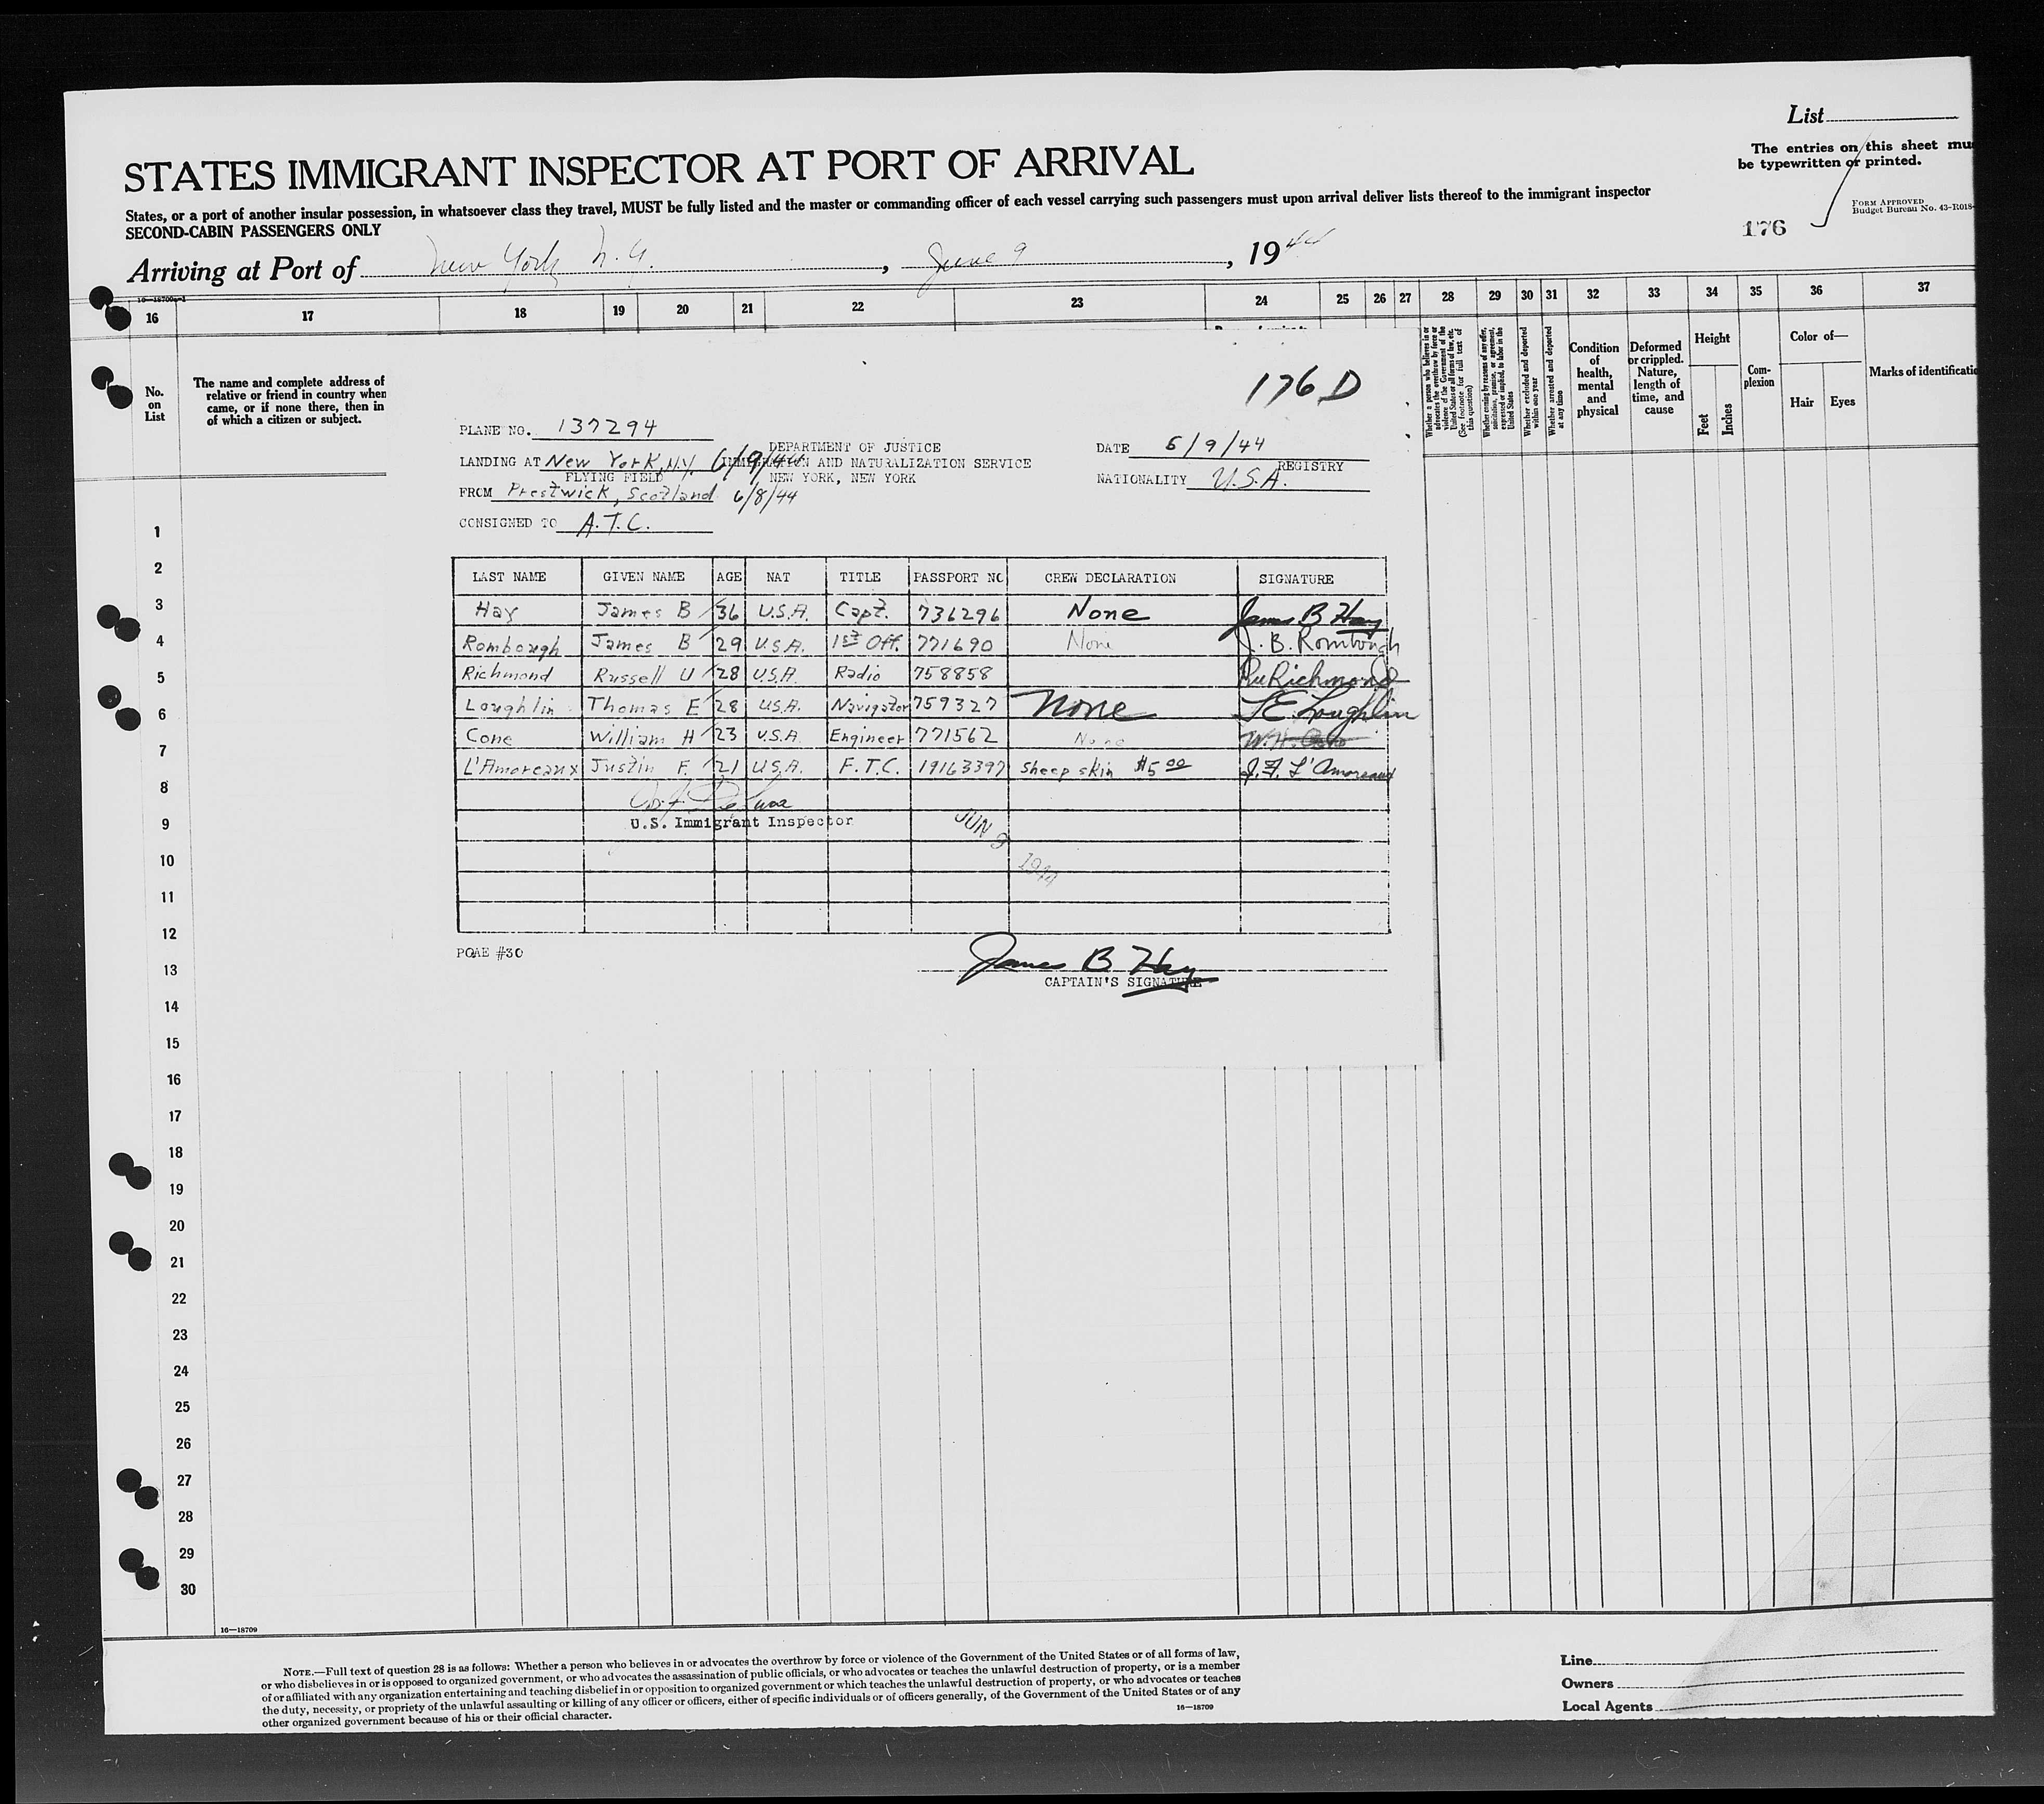 List
The entries on this sheet mu
be typewritten or printed.
STATES IMMIGRANT INSPECTOR AT PORT OF ARRIVAL
States, or a port of another insular possession, in whatsoever class they travel, MUST be fully listed and the master or commanding officer of each vessel carrying such passengers must upon arrival deliver lists thereof to the immigrant inspector
SECOND-CABIN PASSENGERS ONLY
FORM APPROVED
Budget Bureau No. 43-R018-
176
Arriving at Port of New York N.Y., June 9, 1944
16—18709
16 17 18 19 20 21 22 23 24 25 26 27 28 29 30 31 32 33 34 35 36 37
No. on List
The name and complete address of
relative or friend in country when
came, or if none there, then in
of which a citizen or subject.
Whether a person who believes in or advocates the overthrow by force or violence of the Government of the United States or all forms of law, etc. (See footnote for full text of this question)
Whether coming by reason of any offer, solicitation, promise, or agreement, expressed or implied, to labor in the United States
Whether excluded and deported within one year
Whether arrested and deported at any time
Condition of health, mental and physical
Deformed or crippled. Nature, length of time, and cause
Height
Feet Inches
Com-plexion
Color of—
Hair Eyes
Marks of identificatio
176 D
PLANE NO. 137294
DEPARTMENT OF JUSTICE
DATE 6/9/44
LANDING AT New York, N.Y. 6/9/44 IMMIGRATION AND NATURALIZATION SERVICE
REGISTRY
FLYING FIELD NEW YORK, NEW YORK
NATIONALITY U.S.A.
FROM Prestwick, Scotland 6/8/44
CONSIGNED TO A.T.C.
LAST NAME GIVEN NAME AGE NAT TITLE PASSPORT NO CREW DECLARATION SIGNATURE
Hay James B 36 U.S.A. Capt. 736296 None James B Hay
Rombough James B 29 U.S.A. 1st Off. 771690 None J. B. Rombough
Richmond Russell U 28 U.S.A. Radio 758858 RuRichmond
Loughlin Thomas E 28 U.S.A. Navigator 759327 None T E Loughlin
Cone William H 23 U.S.A. Engineer 771562 None W. H. Cone
L'Amoreaux Justin F. 21 U.S.A. F.T.C. 19163397 Sheep skin $5 00 J. F. L'Amoreaux
U.S. Immigrant Inspector
JUN 9 1944
POAE #30
James B Hay
CAPTAIN'S SIGNATURE
1
2
3
4
5
6
7
8
9
10
11
12
13
14
15
16
17
18
19
20
21
22
23
24
25
26
27
28
29
30
16—18709
NOTE.—Full text of question 28 is as follows: Whether a person who believes in or advocates the overthrow by force or violence of the Government of the United States or of all forms of law,
or who disbelieves in or is opposed to organized government, or who advocates the assassination of public officials, or who advocates or teaches the unlawful destruction of property, or is a member
of or affiliated with any organization entertaining and teaching disbelief in or opposition to organized government or which teaches the unlawful destruction of property, or who advocates or teaches
the duty, necessity, or propriety of the unlawful assaulting or killing of any officer or officers, either of specific individuals or of officers generally, of the Government of the United States or of any
other organized government because of his or their official character.
16—18709
Line
Owners
Local Agents